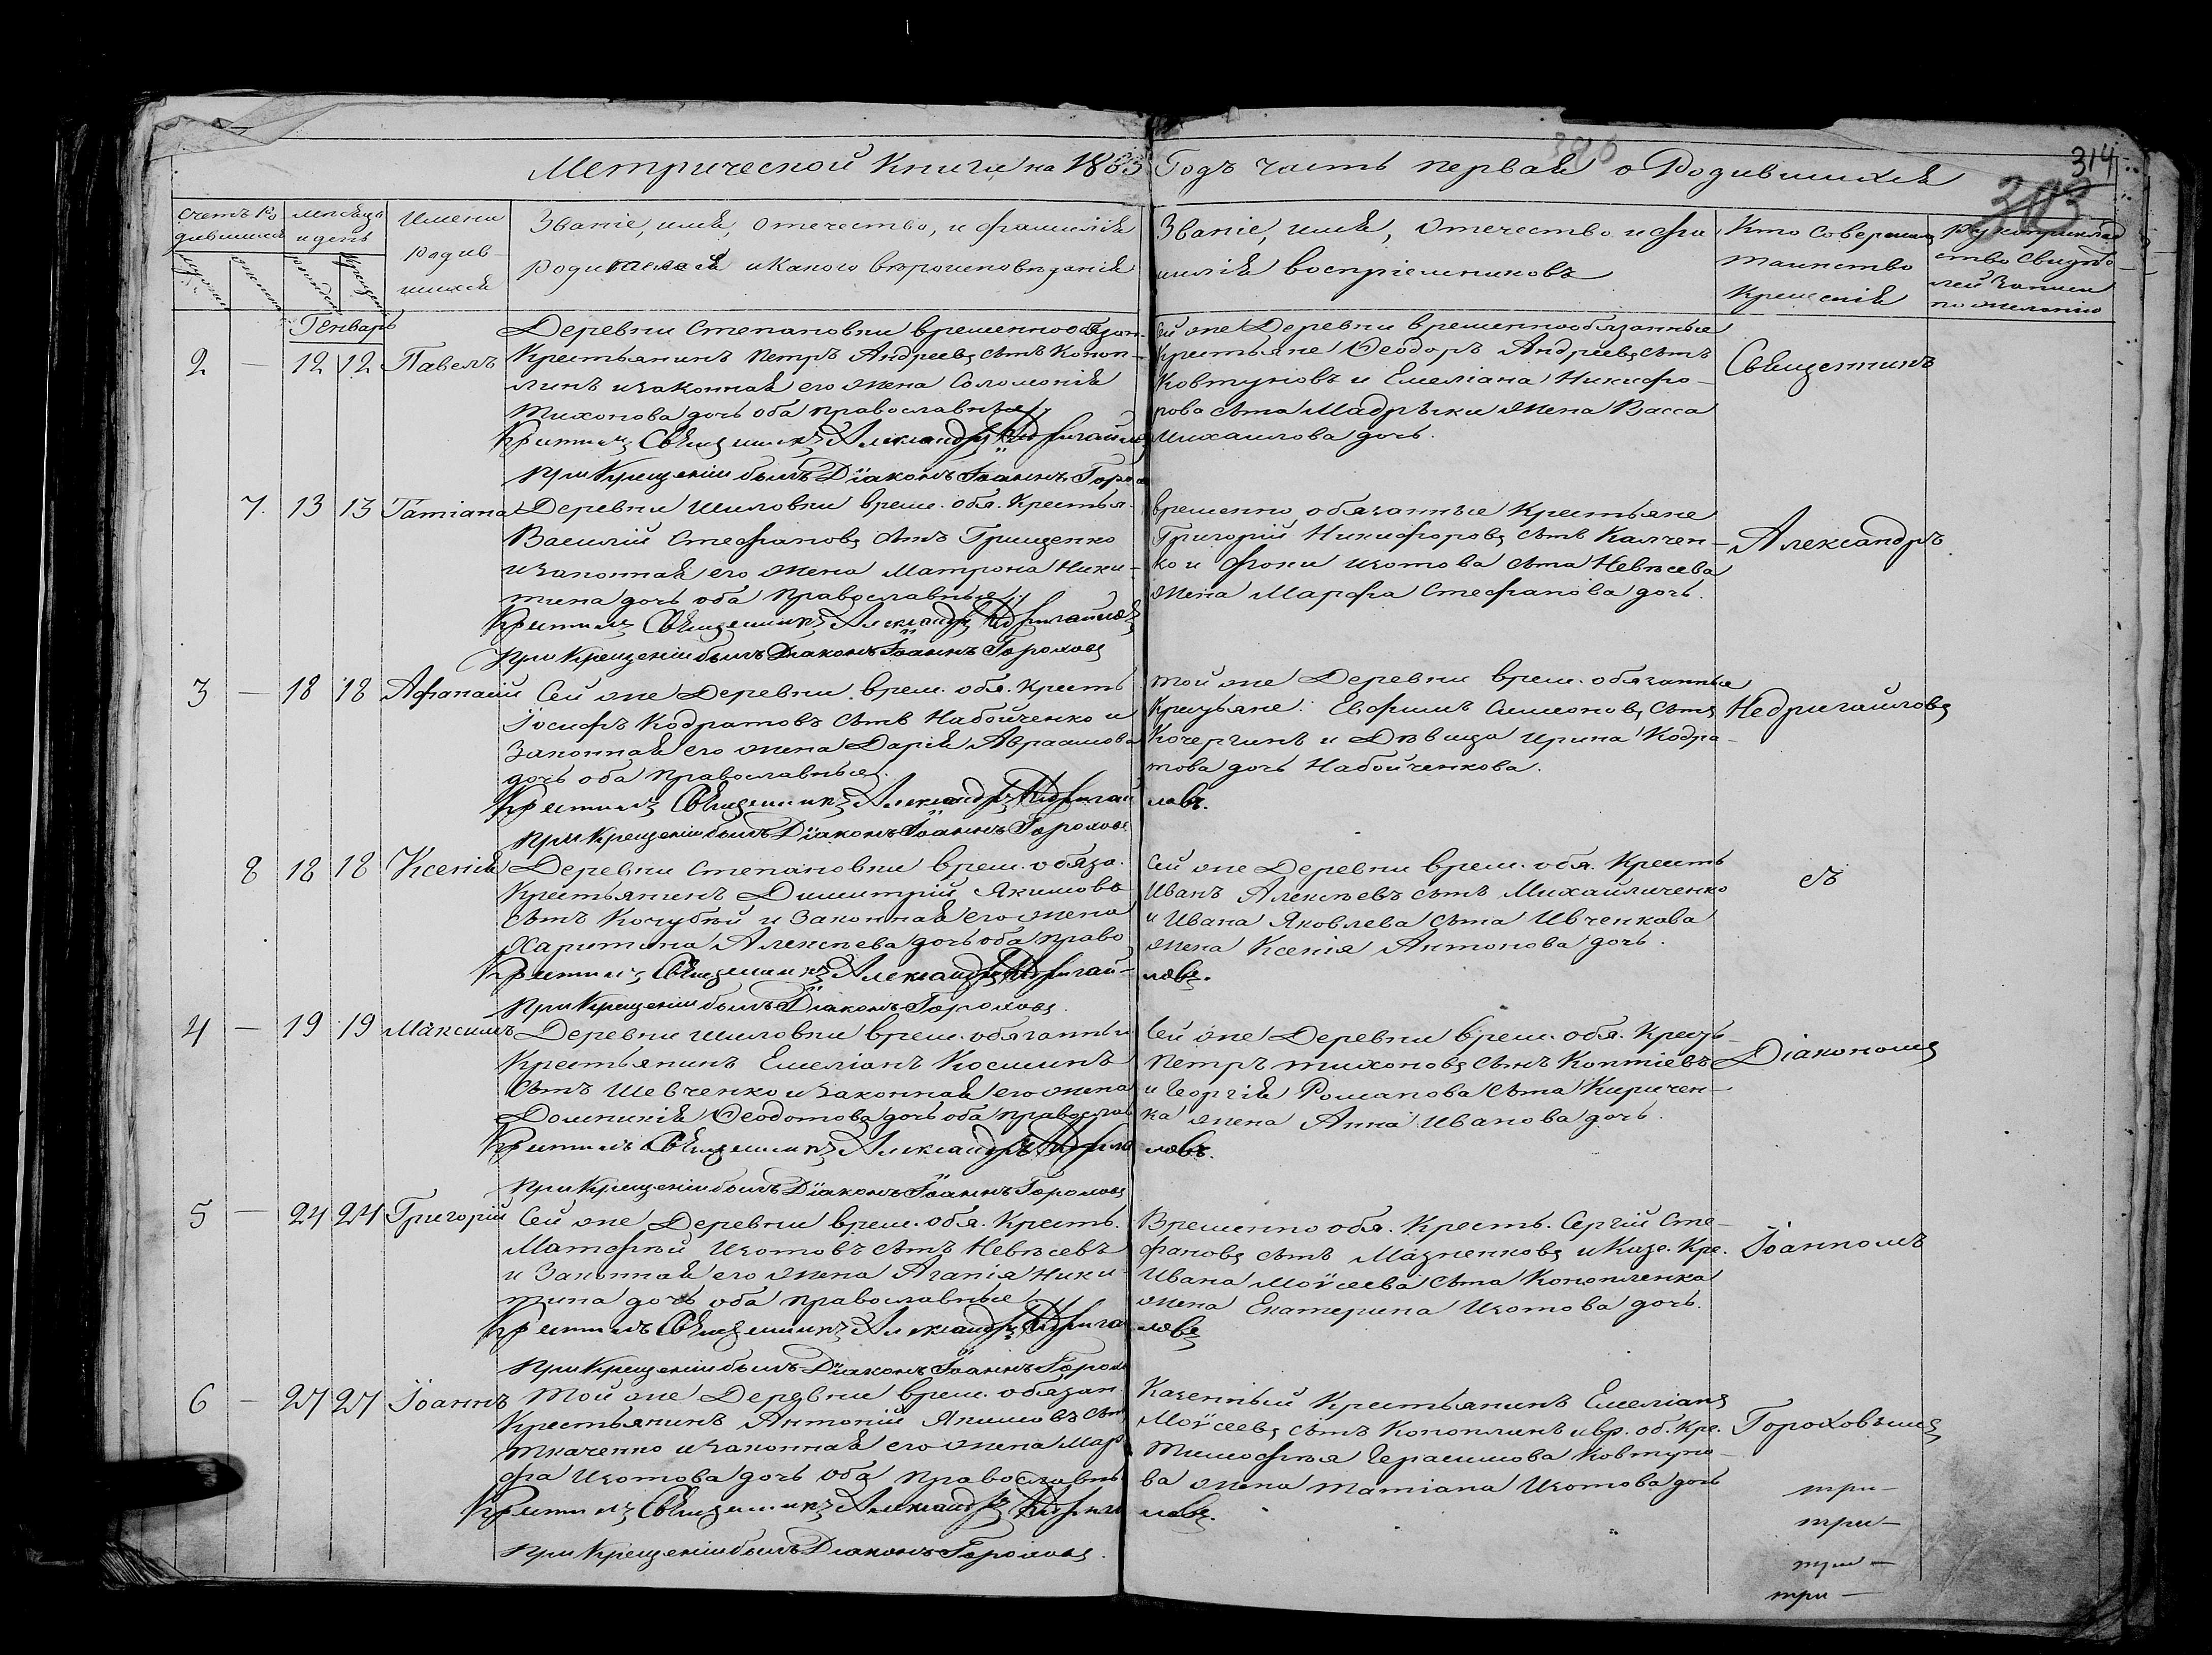 306
314
303
Метрической Книги на 1863 Годъ часть первая о Родившихся
Счетъ ро
дившихся
мѣсяцъ
и день
Имена
родив
шихся
Званіе, имя, отечество, и фамилія
родителей и какого вѣроисповѣданія
Званіе, имя, отечество и фа
милія воспріемниковъ
Кто совершалъ
таинство
крещенія
рукоприклад
ство свидѣте
лей записи
по желанію
Генварь
2 — 12 12 Павелъ
Деревни Степановки временнообязан.
Крестьянинъ Петръ Андреевъ сынъ Коноп-
линъ и законная его жена Соломонія
Тихонова дочь оба православные
Крестилъ Священникъ Александръ Недригайлов
При Крещеніи былъ Діаконъ Іоаннъ Горо
Сей же Деревни временнообязанные
Крестьяне Ѳеодоръ Андреевъ сынъ
Ковтуновъ и Емеліана Никифо-
рова сына Мадрыки жена Васса
Михаилова дочь.
Священникъ
7. 13 13 Татіана
Деревни Шиловки врем. обя. Крестья-
Василій Стефановъ сынъ Грищенко
и законная его жена Матрона Ники-
тина дочь оба православные
Крестилъ Священникъ Александръ Недригайловъ
При Крещеніи былъ Діаконъ Іоаннъ Гороховъ
временно обязанные Крестьяне
Григорій Никифоровъ сынъ Калчен-
ко и Фоки Изотова сына Невѣсева
жена Марфа Стефанова дочь.
Александръ
3 — 18 18 Афанасій
Сей же Деревни врем. обя. Кресть
Іосифъ Кодратовъ сынъ Набойченко и
Законная его жена Дарія Авраамова
дочь оба православные.
Крестилъ Священникъ Александръ Недригай
При Крещеніи былъ Діаконъ Іоаннъ Гороховъ
той же Деревни врем. обязанные
Крестьяне: Евфимъ Симеоновъ сынъ
Кочергинъ и Дѣвица Ирина Кодра-
това дочь Набойченкова.
ловъ.
Недригайловъ
8 18 18 Ксенія
Деревни Степановки врем. обяза.
Крестьянинъ Димитрій Якимовъ
сынъ Кочубѣй и Законная его жена
Харитина Алексѣева дочь оба право
Крестилъ Священникъ Александръ Недригай-
При Крещеніи былъ Діаконъ Гороховъ
Сей же Деревни врем. обя. Кресть
Иванъ Алексѣевъ сынъ Михайличенко
и Ивана Яковлева сына Ивченкова
жена Ксенія Антонова дочь.
ловъ.
съ
4 — 19 19 Максимъ
Деревни Шиловки врем. обязанный
Крестьянинъ Емеліанъ Косминъ
сынъ Шевченко и законная его жена
Домникія Ѳеодотова дочь оба православ
Крестилъ Священникъ Александръ Недрига
При Крещеніи былъ Діаконъ Іоаннъ Гороховъ
Сей же Деревни врем. обя. Кресть-
Петръ Тихоновъ сынъ Коптіевъ
и Георгія Романова сына Киричен-
ка жена Анна Иванова дочь.
ловъ.
Діакономъ
5 — 24 24 Григорій
Сей же Деревни врем. обя. Кресть.
Матфѣй Изотовъ сынъ Невѣсевъ
и Законная его жена Агапія Ники-
тина дочь оба православные
Крестилъ Священникъ Александръ Недрига
При Крещеніи былъ Діаконъ Іоаннъ Горохо
Временно обя. Кресть. Сергій Сте-
фановъ сынъ Мазненковъ и Казе. Кре.
Ивана Моѵсеева сына Конопленка
жена Екатерина Изотова дочь.
ловъ
Іоанномъ
6 — 27 27 Іоаннъ
Той же Деревни врем. обязан.
Крестьянинъ Антоній Якимовъ сынъ
Ткаченко и законная его жена Мар
фа Изотова дочь оба православны
Крестилъ Священникъ Александръ Недрига
При Крещеніи былъ Діаконъ Гороховъ.
Казенный Крестьянинъ Емеліанъ
Моѵсеевъ сынъ Коноплинъ и вр. об. Кре.
Тимофѣя Герасимова Ковтуно-
ва жена Татіана Изотова дочь
ловъ.
Гороховымъ
три —
три —
три —
три —